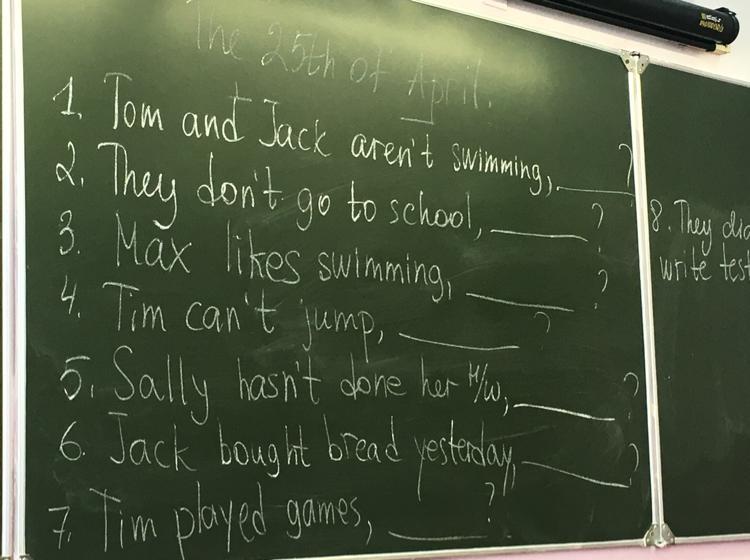 The 25th of April.
1. Tom and Jack aren't swimming, ______ ?
2. They don't go to school, ______ ?
3. Max likes swimming, ______ ?
4. Tim can't jump, ______ ?
5. Sally hasn't done her H/w, ______ ?
6. Jack bought bread yesterday, ______ ?
7. Tim played games, ______ ?
8. They did
write test